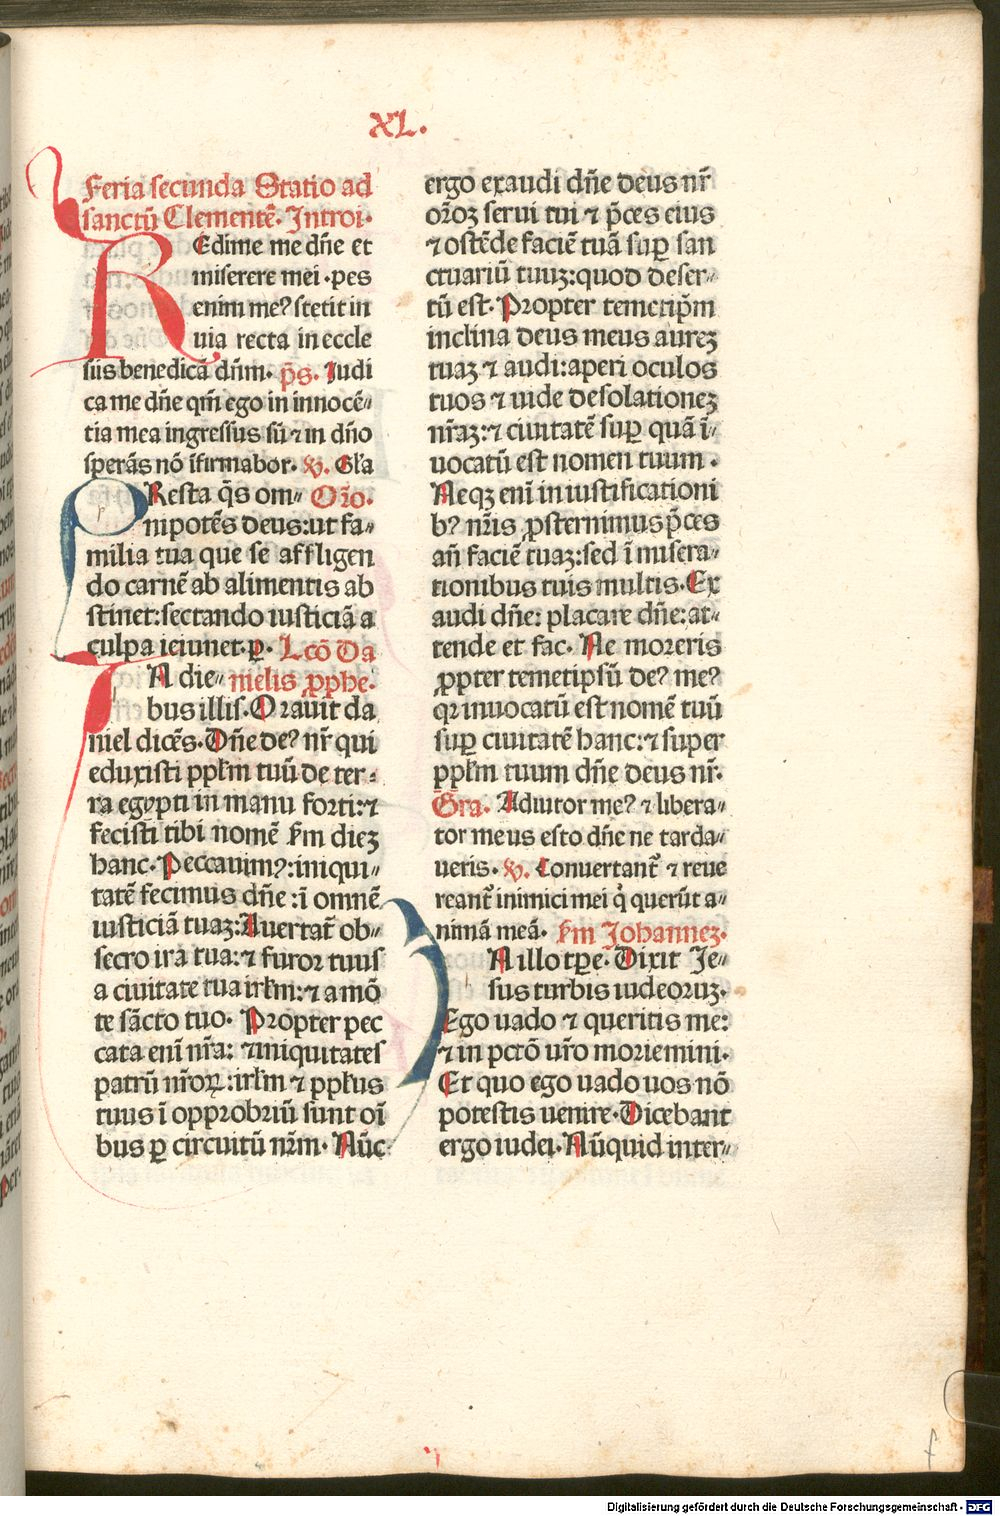 XL.
Feria secunda Statio ad
sanctū Clementē. Introi.
REdime me dn̄e et
miserere mei .pes
enim meꝰ stetit in
uia recta in eccle
siis benedicā dn̄m. p̄s. Iudi
ca me dn̄e qm̄ ego in innocē⸗
tia mea ingressus sū ⁊ in dn̄o
sperās nō īfirmabor. v. Gl̄a
PResta q̄s om⸗ Or̄o.
nipotēs deus:ut fa⸗
milia tua que se affligen
do carnē ab alimentis ab
stinet:sectando iusticiā a
culpa ieiunet.ꝑ. Lcō Da
IN die⸗ nielis ꝓphe.
bus illis. Orauit da
niel dicēs. Dn̄e deꝰ nr̄ qui
eduxisti ppl̄m tuū de ter⸗
ra egypti in manu forti:⁊
fecisti tibi nomē s̄m dieꝫ
hanc. Peccauimꝰ:iniqui⸗
tatē fecimus dn̄e :ī omnē
iusticiā tuaꝫ:Auertat̄ ob⸗
secro ira tua:⁊ furor tuus
a ciuitate tua irl̄m:⁊ a mō
te sācto tuo. Propter pec
cata eni nr̄a: ⁊iniquitates
patrū nr̄oꝝ:irl̄m ⁊ ppl̄us
tuus ī opprobriū sunt oī
bus ꝑ circuitū nr̄m. Nūc
ergo exaudi dn̄e deus nr̄
or̄oꝫ serui tui ⁊ p̄ces eius
⁊ ostēde faciē tuā suꝑ san
ctuariū tuuꝫ:quod deser⸗
tū est. Propter temetip̄m
inclina deus meus aureꝫ
tuaꝫ ⁊ audi:aperi oculos
tuos ⁊ uide desolationeꝫ
nr̄aꝫ:⁊ ciuitatē suꝑ quā ī⸗
uocatū est nomen tuum .
Neqꝫ enī in iustificationi
bꝰ nr̄is ꝓsternimus p̄ces
an̄ faciē tuaꝫ:sed ī misera⸗
tionibus tuis multis. Ex
audi dn̄e: placare dn̄e:at⸗
tende et fac. Ne moreris
ꝓpter temetipsū deꝰ meꝰ
qꝛ inuocatū est nomē tuū
suꝑ ciuitatē hanc:⁊ super
ppl̄m tuum dn̄e deus nr̄.
Gra. Adiutor meꝰ ⁊ libera⸗
tor meus esto dn̄e ne tarda⸗
ueris. v. Conuertant̄ ⁊ reue
reant̄ inimici mei qͥ querūt a⸗
nimā meā. s̄m Johanneꝫ.
IN illo tꝑe. Dixit Je⸗
sus turbis iudeoruꝫ.
Ego uado ⁊ queritis me:
⁊ in pctō ur̄o moriemini.
Et quo ego uado uos nō
potestis uenire. Dicebant
ergo iudei. Nūquid inter⸗
f
Digitalisierung gefördert durch die Deutsche Forschungsgemeinschaft - DFG